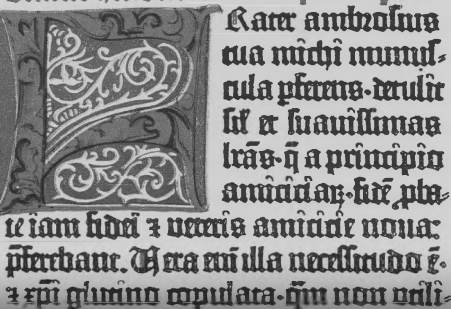 FRater ambrosius
tua michi munus-
cula pferens · detulit
sił et suauissimas
lrās · q̄ a principio
amiciciaꝝ · fidē ꝓba-
te iam fidei ⁊ veteris amicicie noua:
p̄ferebant. Vera em̄ illa necessitudo ē ·
⁊ xp̄i glutino copulata · qm̄ non utili-